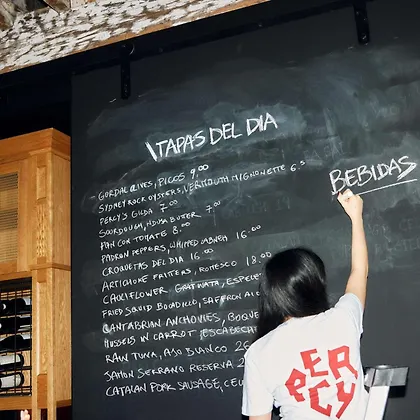 TAPAS DEL DIA
- GORDAL OLIVES, PICOS 9.00
SYDNEY ROCK OYSTERS, VERMOUTH MIGNONETTE 6.5
PERCY'S GILDA 7.00
SOURDOUGH, NDUJA BUTER 7.00
PAN CON TOMATE 8.00
PADRON PEPPERS, WHIPPED JABNEH 16.00
CROQUETAS DEL DIA 16.00
ARTICHOKE FRITERS, ROMESCO 18.00
CAULIFLOWER GRATINATA, ESPELE
FRIED SQUID BOCADILLO, SAFFRON AIO
CANTABRIAN ANCHOVIES, BOQUE
MUSSELS IN CARROT ESCABECH
RAW TUNA, AJO BLANCO 26
JAMON SERRANO RESERVA 2
CATALAN PORK SAUSAGE, CEU
BEBIDAS
PERCY